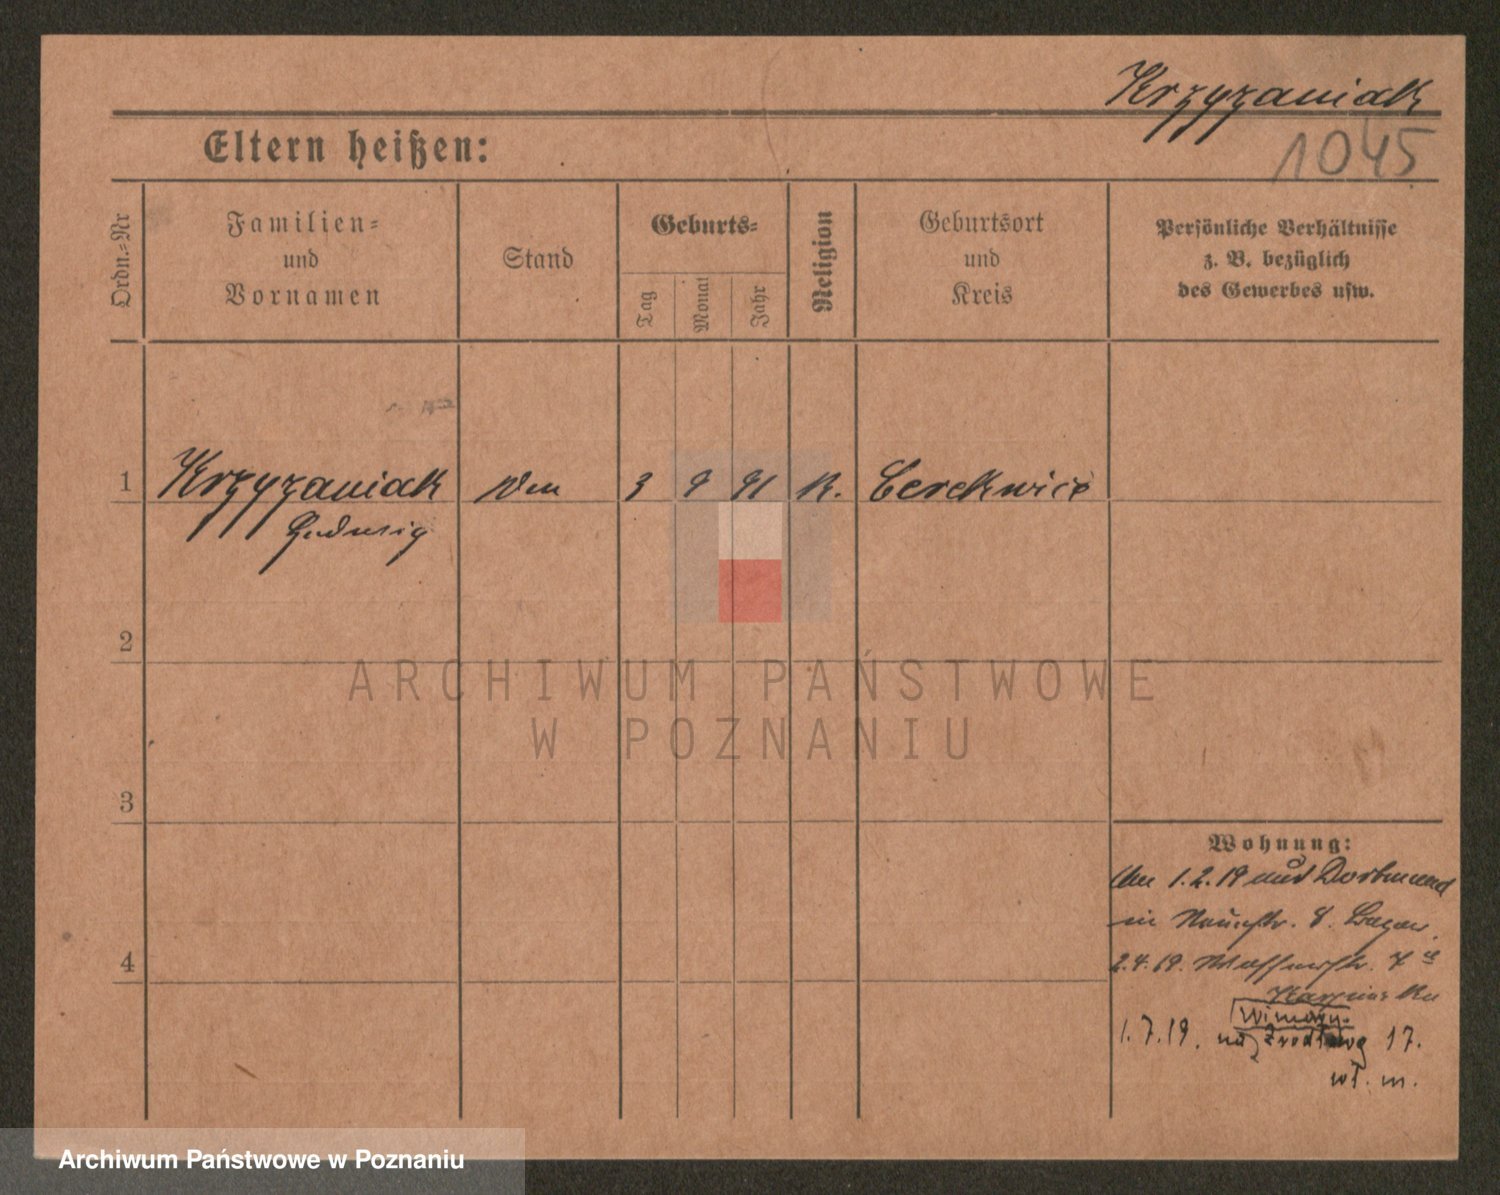 Krzyzaniak
1045
Eltern heißen:
Ordn.-Nr
Familien-
und
Vornamen
Stand
Geburts-
Tag
Monat
Jahr
Religion
Geburtsort
und
Kreis
Persönliche Verhältnisse
z. B. bezüglich
des Gewerbes usw.
1 Krzyzaniak 3 9 91 K. Cerekwice
Hedwig
2
ARCHIWUM PAŃSTWOWE
W POZNANIU
3
Wohnung:
Am 1.2.19 aus Dortmund
in 8.
4
2.4.19.
1.7.19. na 17.
wł. m.
Archiwum Państwowe w Poznaniu